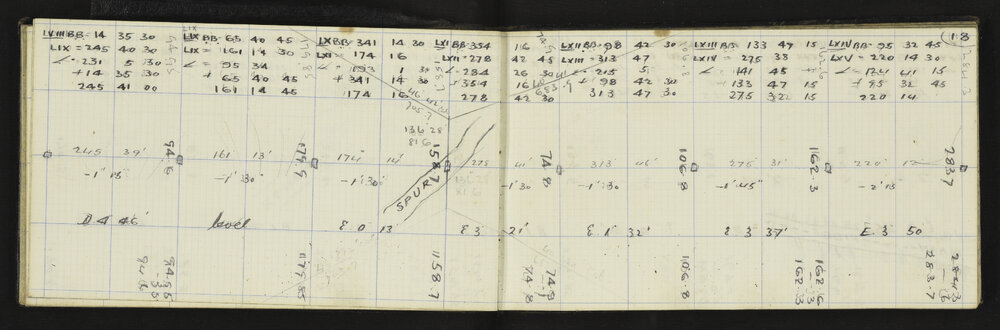 LVIII BB = 14 35 30
LIX = 245 40 30
∠ = 231 5 30
+ 14 35 30
245 41 00
245 39'
- 1' 15
D 4 46'
94.6
94.95
LIX
LIX BB = 65 40 45
LX = 161 14 30
∠ = 95 34
+ 65 40 45
161 14 45
161 13'
- 1' 30"
level
179.9
LX BB = 341 14 30
LXI = 174 16
+ 341 14 30
174 16
174 14'
- 1' 30"
E 0 13'
179.85
LXI BB = 354 16
LXII = 278 42 45
∠ = 284 26 30
+ 354 16
278 42 30
136.28
81.6
SPUR
158.7
278 41'
- 1' 30
E 3 21'
158.7
LXII BB = 98 42 30
LXIII = 313 47
∠ = 215 5
+ 98 42 30
313 47 30
74.8
313 46'
- 1' 30
E 1' 32'
74.9
74.8
LXIII BB = 133 47 15
LXIV = 275 38
∠ = 141 45
+ 133 47 15
275 32 15
106.8
275 31'
- 1' 45"
E 3 37'
106.8
18
LXIV BB = 95 32 45
LXV = 220 14 30
∠ = 124 41 15
+ 95 32 45
220 14
162.3
220 12
- 2' 15
E 3 50
162.6
.3
162.3
283.7
284.3
.6
283.7